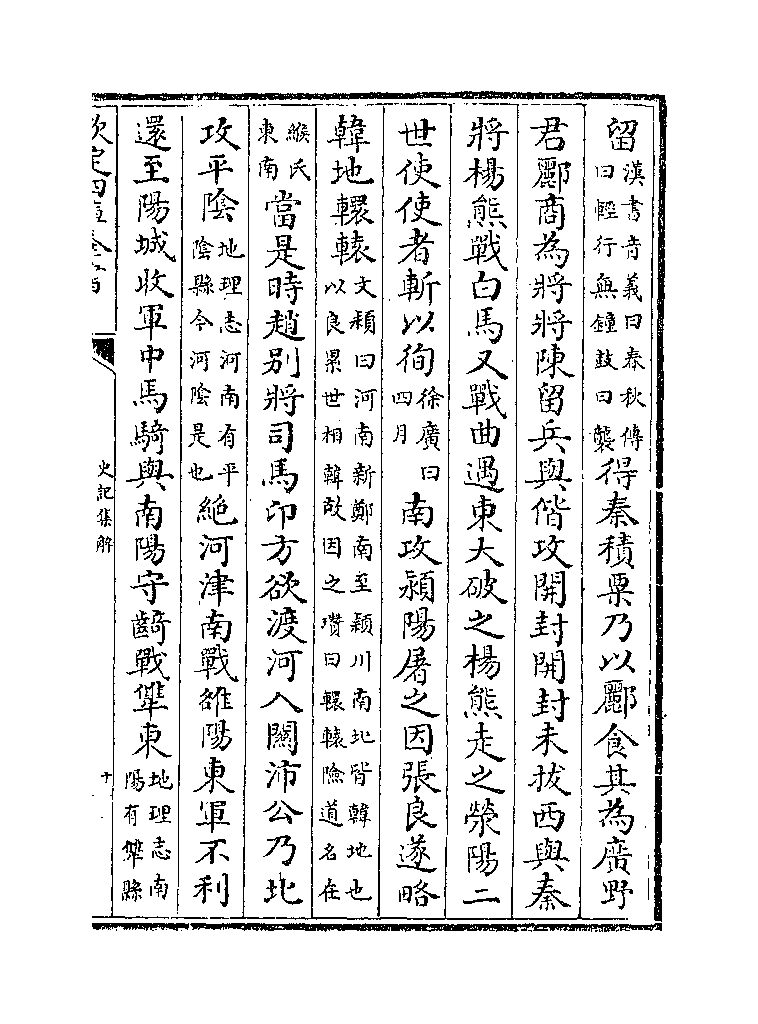 留漢書音義曰春秋傳曰輕行無鐘鼓曰襲得秦積粟乃以酈食其為廣野
君酈商為將將陳留兵與偕攻開封開封未拔西與秦
將楊熊戰白馬又戰曲遇東大破之楊熊走之滎陽二
世使使者斬以徇徐廣曰四月南攻潁陽屠之因張良遂略
韓地轘轅文穎曰河南新鄭南至潁川南北皆韓地也以良累世相韓故因之瓚曰轘轅險道名在
緱氏東南當是時趙别將司馬卬方欲渡河入關沛公乃北
攻平陰地理志河南有平陰縣今河陰是也絶河津南戰雒陽東軍不利
還至陽城收軍中馬騎與南陽守齮戰犨東地理志南陽有犨縣
欽定四庫全書
史記集解
十